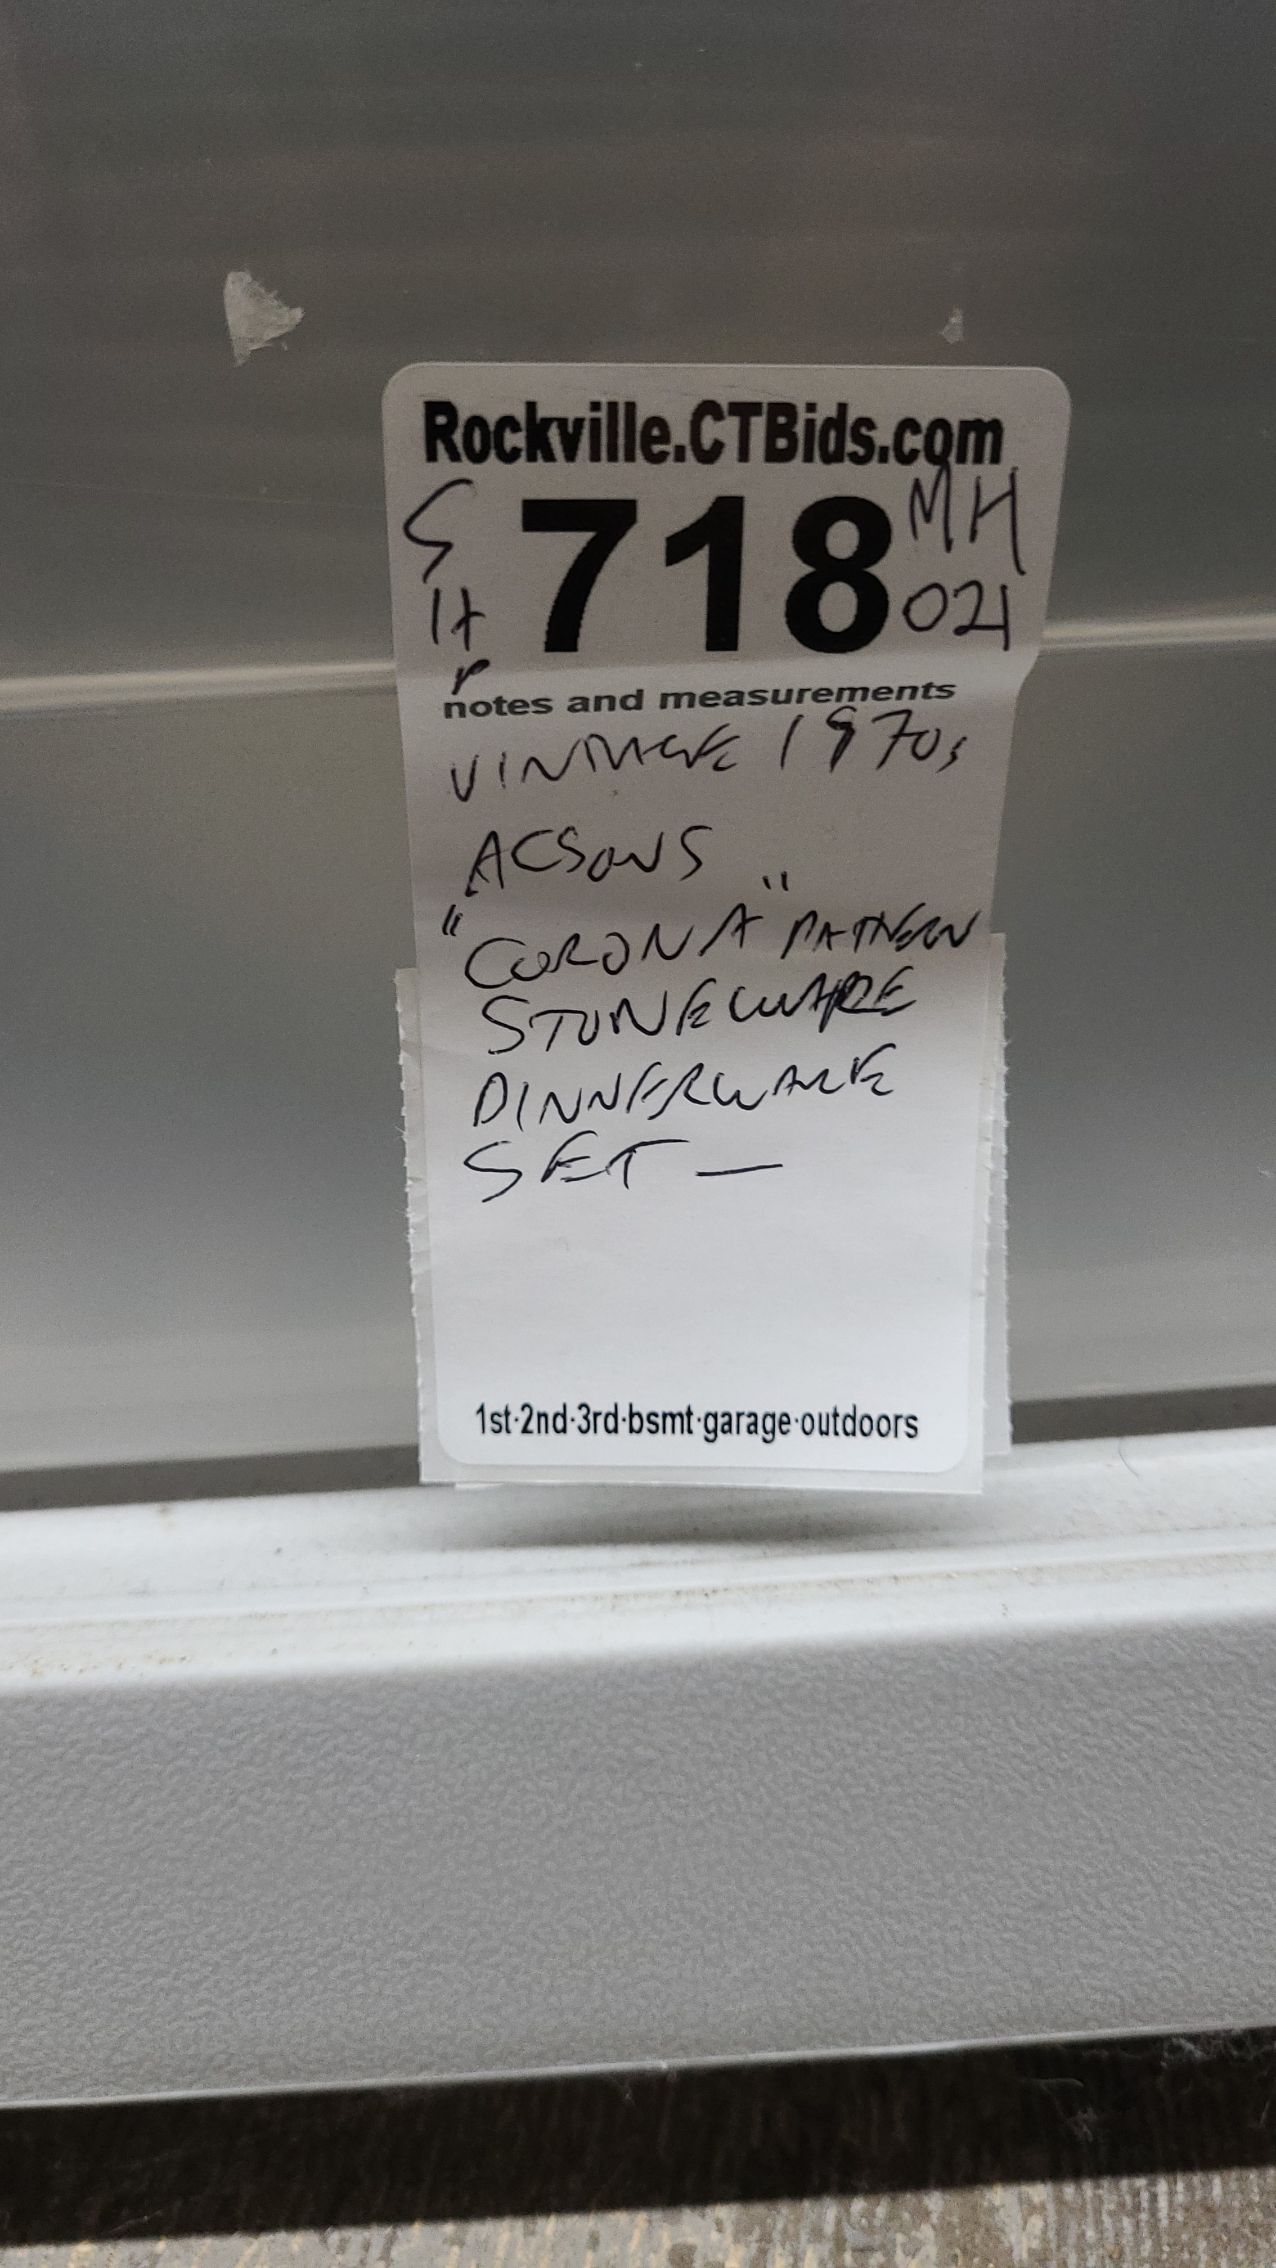 Rockville.CTBids.com
S 718 MH
021
notes and measurements
VINTAGE 1970s
ACSONS
"CORONA" PATTERN
STONEWARE
DINNERWARE
SET —
1st·2nd·3rd·bsmt·garage·outdoors